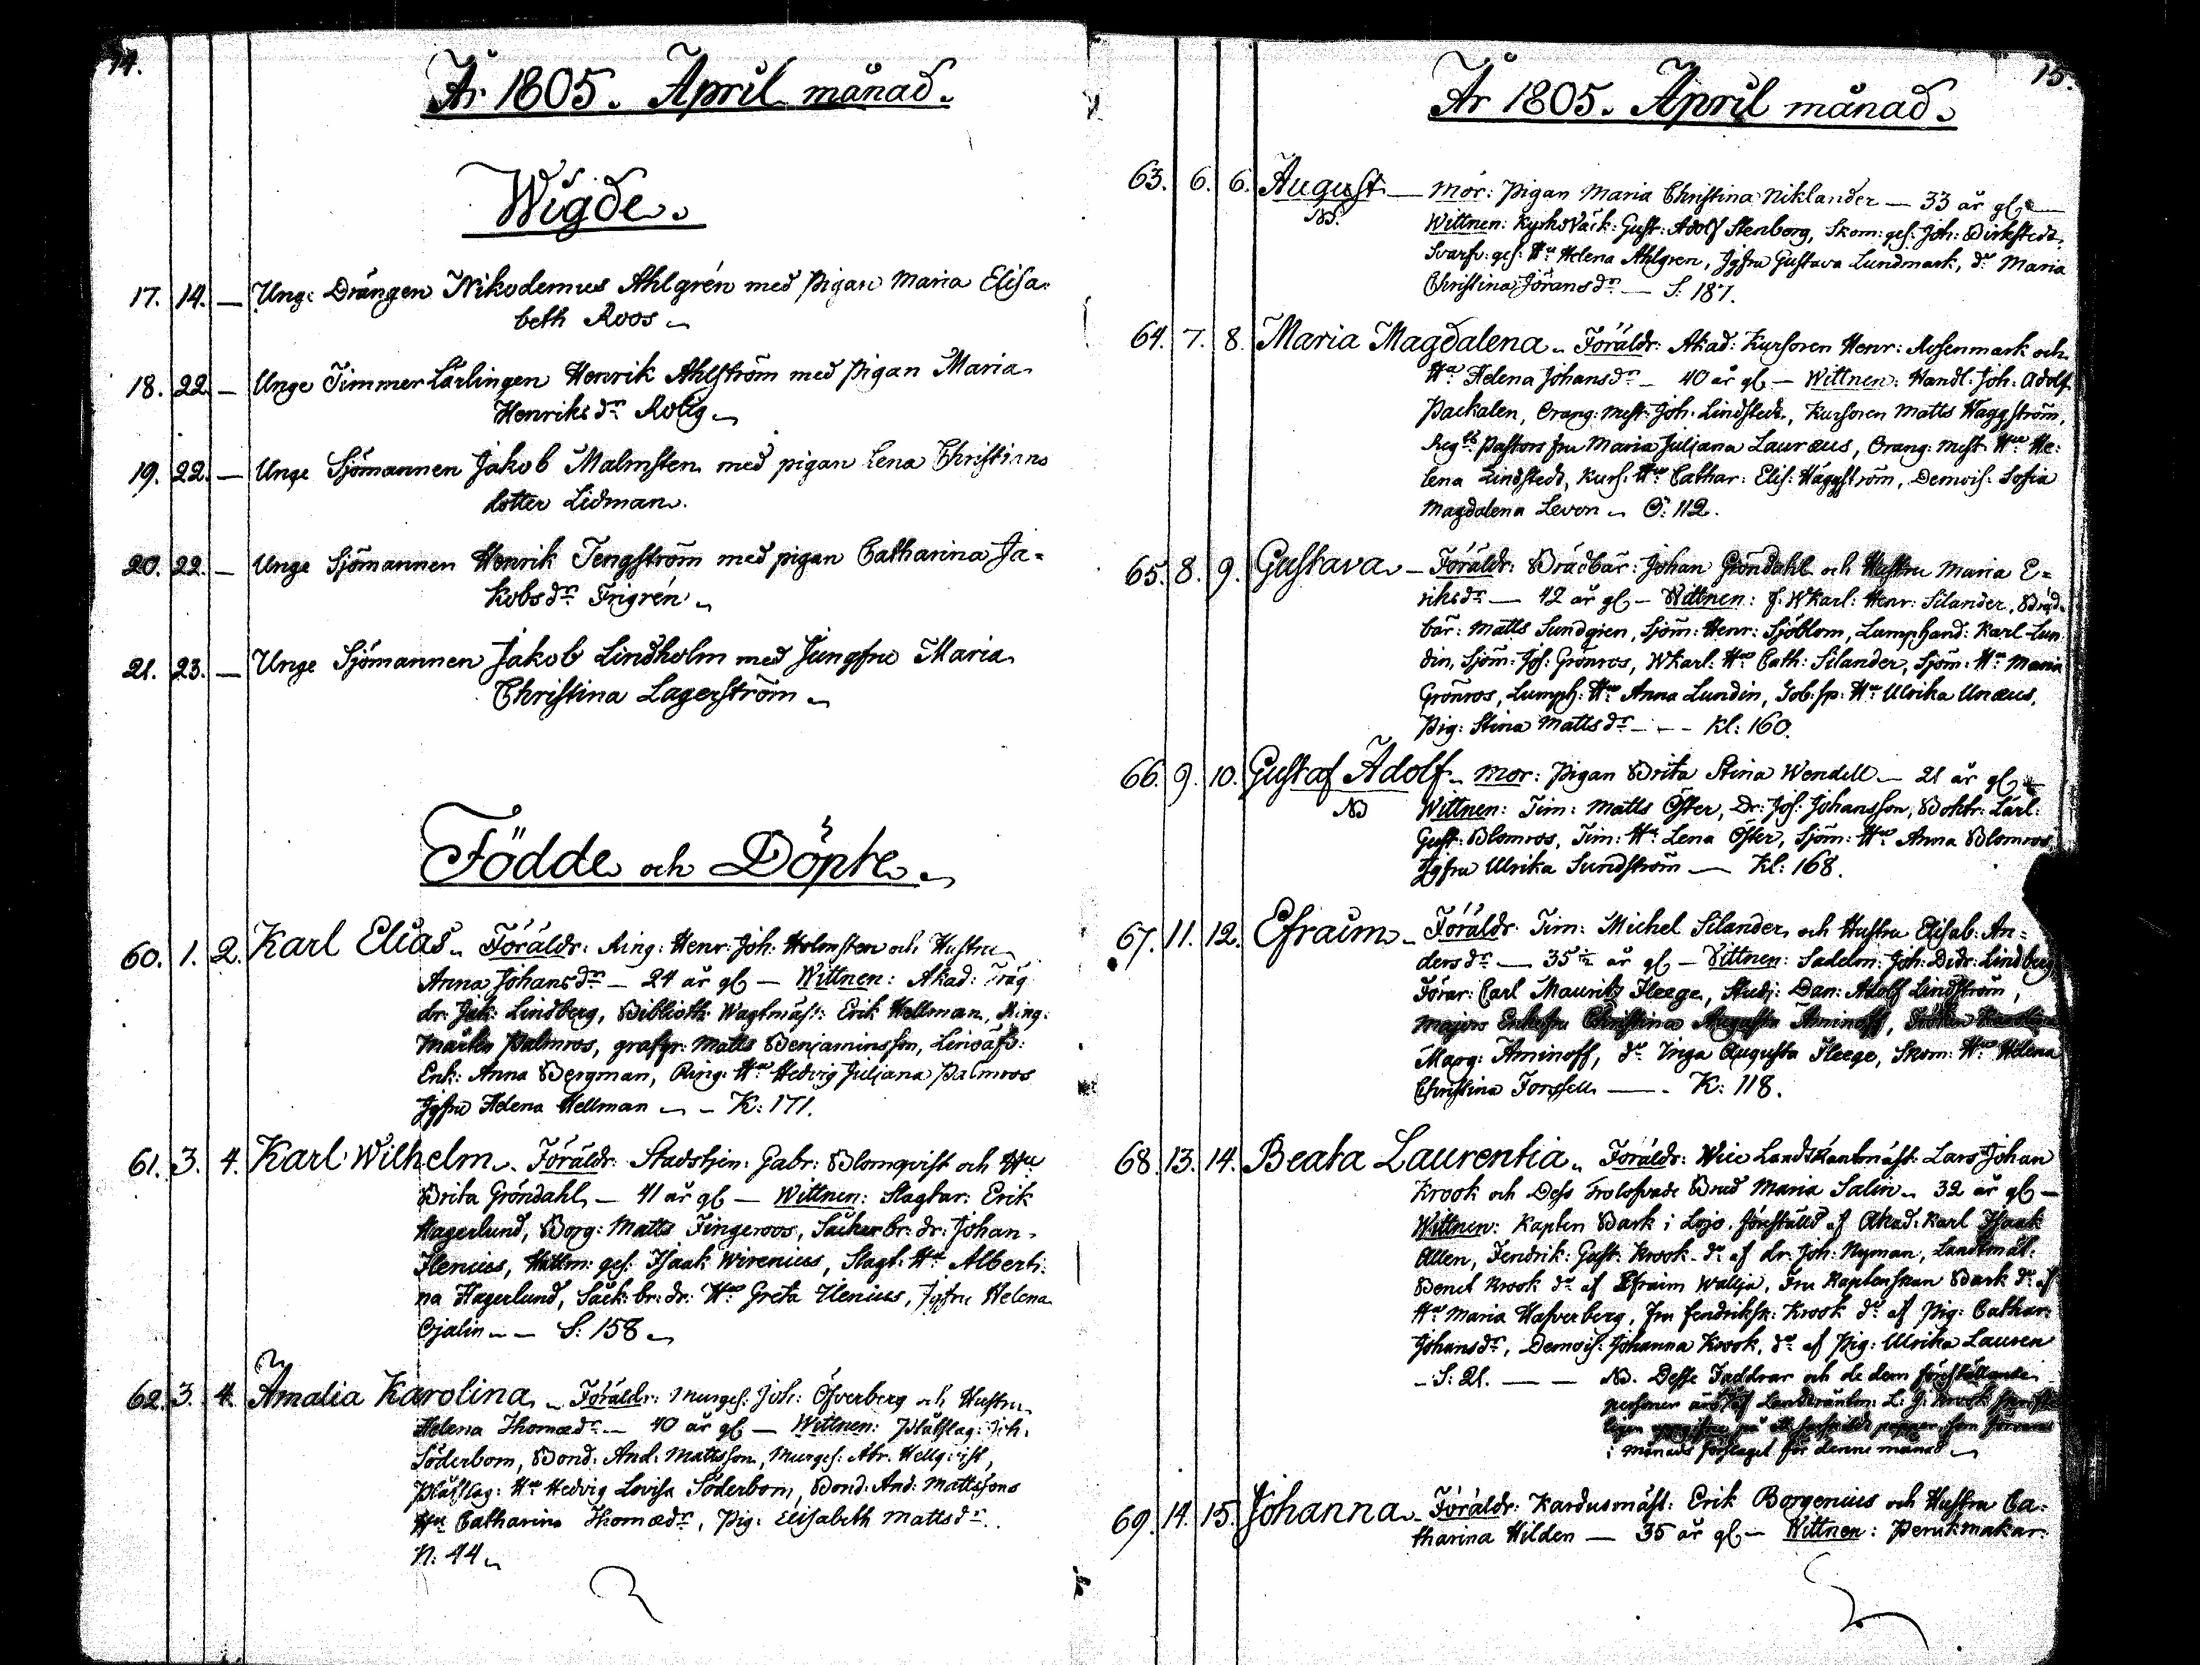 14.
År 1805. April månad.
Wigde.
17. 14. — Unge Drängen Nikodemus Ahlgrén med Pigan Maria Elisa=
beth Roos
18. 22. — Unge Timmer Lärlingen Henrik Ahlström med Pigan Maria
Henriksdr Rolig
19. 22. — Unge Sjömannen Jakob Malmsten med pigan Lena Christians
dotter Lidman.
20. 22. — Unge Sjömannen Henrik Tengström med pigan Catharina Ja=
kobsdr Frigrén
21. 23. — Unge Sjömannen Jakob Lindholm med Jungfru Maria
Christina Lagerström
Födde och Döpte
60. 1. 2. Karl Elias Föräldr: Ring: Henr: Joh: Holmsten och Hustru
Anna Johansdr — 24 år gl — Wittnen: Akad: Träg
dr: Jak: Lindberg, Biblioth: Wagtmäst: Erik Hellman, Ring:
Märtin Palmros, grafgr: Matts Benjaminsson,
Enk: Anna Bergman, Ring: Hu Hedvig Juliana Palmros
Jgfru Helena Hellman — K: 171.
61. 3. 4. Karl Wilhelm Föräldr: Stadstjen: Gabr: Blomqvist och Hu
Brita Gröndahl — 41 år gl — Wittnen: Slagtar: Erik
Hagerlund, Borg: Matts Fingeroos, Sückerbr: dr: Johan
Ilenius, Hattm: ges: Isaak Wirenius, Slagt: Hu Alberti=
na Hagerlund, Sück: br: dr: Hu Greta Ilenius, Jgfru Helena
Ojalin — S: 158
62. 3. 4. Amalia Karolina Föräldr: Murges: Joh: Öfverberg och Hustru
Helena Thomædr — 40 år gl — Wittnen: Plåtslag: Joh:
Söderbom, Bond: And: Mattsson, Murges: Abr: Hellqvist,
Plåtslag: Hu Hedvig Lovisa Söderbom, Bond: And: Mattssons
Hu Catharina Thomædr, Pig: Elisabeth Mattsdr
N: 44
15.
År 1805. April månad.
63. 6. 6. August — Mor: Pigan Maria Christina Niklander — 33 år gl
NB. Wittnen: Kyrkväck: Gust: Adolf Stenborg, Skom: ges: Joh: Birkstedt,
Svarfv: ges: Hu Helena Ahlgren, Jgfru Gustava Lundmark, do Maria
Christina Jöransdr — S: 187.
64. 7. 8. Maria Magdalena Föräldr: Akad: Kursoren Henr: Rosenmark och
Hu Helena Johansdr — 40 år gl — Wittnen: Handl: Joh: Adolf
Packalen, Orang: mest: Joh: Lindstedt, Kursoren Matts Häggström,
Reg:ts Pastors fru Maria Juliana Lauræus, Orang: mest: Hu He=
lena Lindstedt, Kurs: Hu Cathar: Elis: Häggström, Demois: Sofia
Magdalena Levon — O: 112.
65. 8. 9. Gustava — Föräldr: Brädbär: Johan Gröndahl och Hustru Maria E=
riksdr — 42 år gl — Wittnen: f. Wkarl: Henr: Silander, Bräd=
bär: Matts Sundgren, Sjöm: Henr: Sjöblom, Lumphand: Karl Lun
din, Sjöm: Jos: Grönros, Wkarl: Hu Cath: Silander, Sjöm: Hu Maria
Grönros, Lumph: Hu Anna Lundin, Tob: sp: Hu Ulrika Unæus,
Pig: Stina Mattsdr — Kl: 160.
66. 9. 10. Gustaf Adolf Mor: Pigan Brita Stina Wendell — 21 år gl
NB Wittnen: Tim: Matts Öster, Dr: Jos: Johansson, Boktr: Lärl:
Gust: Blomros, Tim: Hu Lena Öster, Sjöm: Hu Anna Blomros
Jgfru Ulrika Sundström — Kl: 168.
67. 11. 12. Efraim Föräldr: Tim: Michel Silander och Hustru Elisab: An=
dersdr — 35 ½ år gl — Wittnen: Sadelm: Joh: Didr: Lindberg
Förar: Carl Mauritz Fleege, Studi: Dan: Adolf Lindström,
Majors Enkefru Christina Augusta Aminoff, Fröken
Marg: Aminoff, do Inga Augusta Fleege, Skom: Hu Helena
Christina Forssell — K: 118.
68. 13. 14. Beata Laurentia Föräldr: Wice Landskantmäst: Lars Johan
Krook och Dess Trolofvade Brud Maria Salin — 32 år gl —
Wittnen: Kapten Bark i Lojo, föreställd af Akad: Karl Isaak
Allen, Fendrik: Gust: Krook do af dr: Joh: Nyman, Landtmät:
Bened Krook do af Efraim Wallia, Fru Kaptenskan Bark do af
Hu Maria Hafverberg, Fru Fendriksk: Krook do af Pig: Cathar:
Johansdr, Demois: Johanna Krook, do af Pig: Ulrika Lauren
— S: 21. — NB. Desse Faddrar och de dem föreställande
personer af Landträntm: L. J. Krook
i månads förslaget för denne månad
69. 14. 15. Johanna Föräldr: Kardusmäst: Erik Borgenius och Hustru Ca=
tharina Hilden — 35 år gl — Wittnen: Perukmakar: